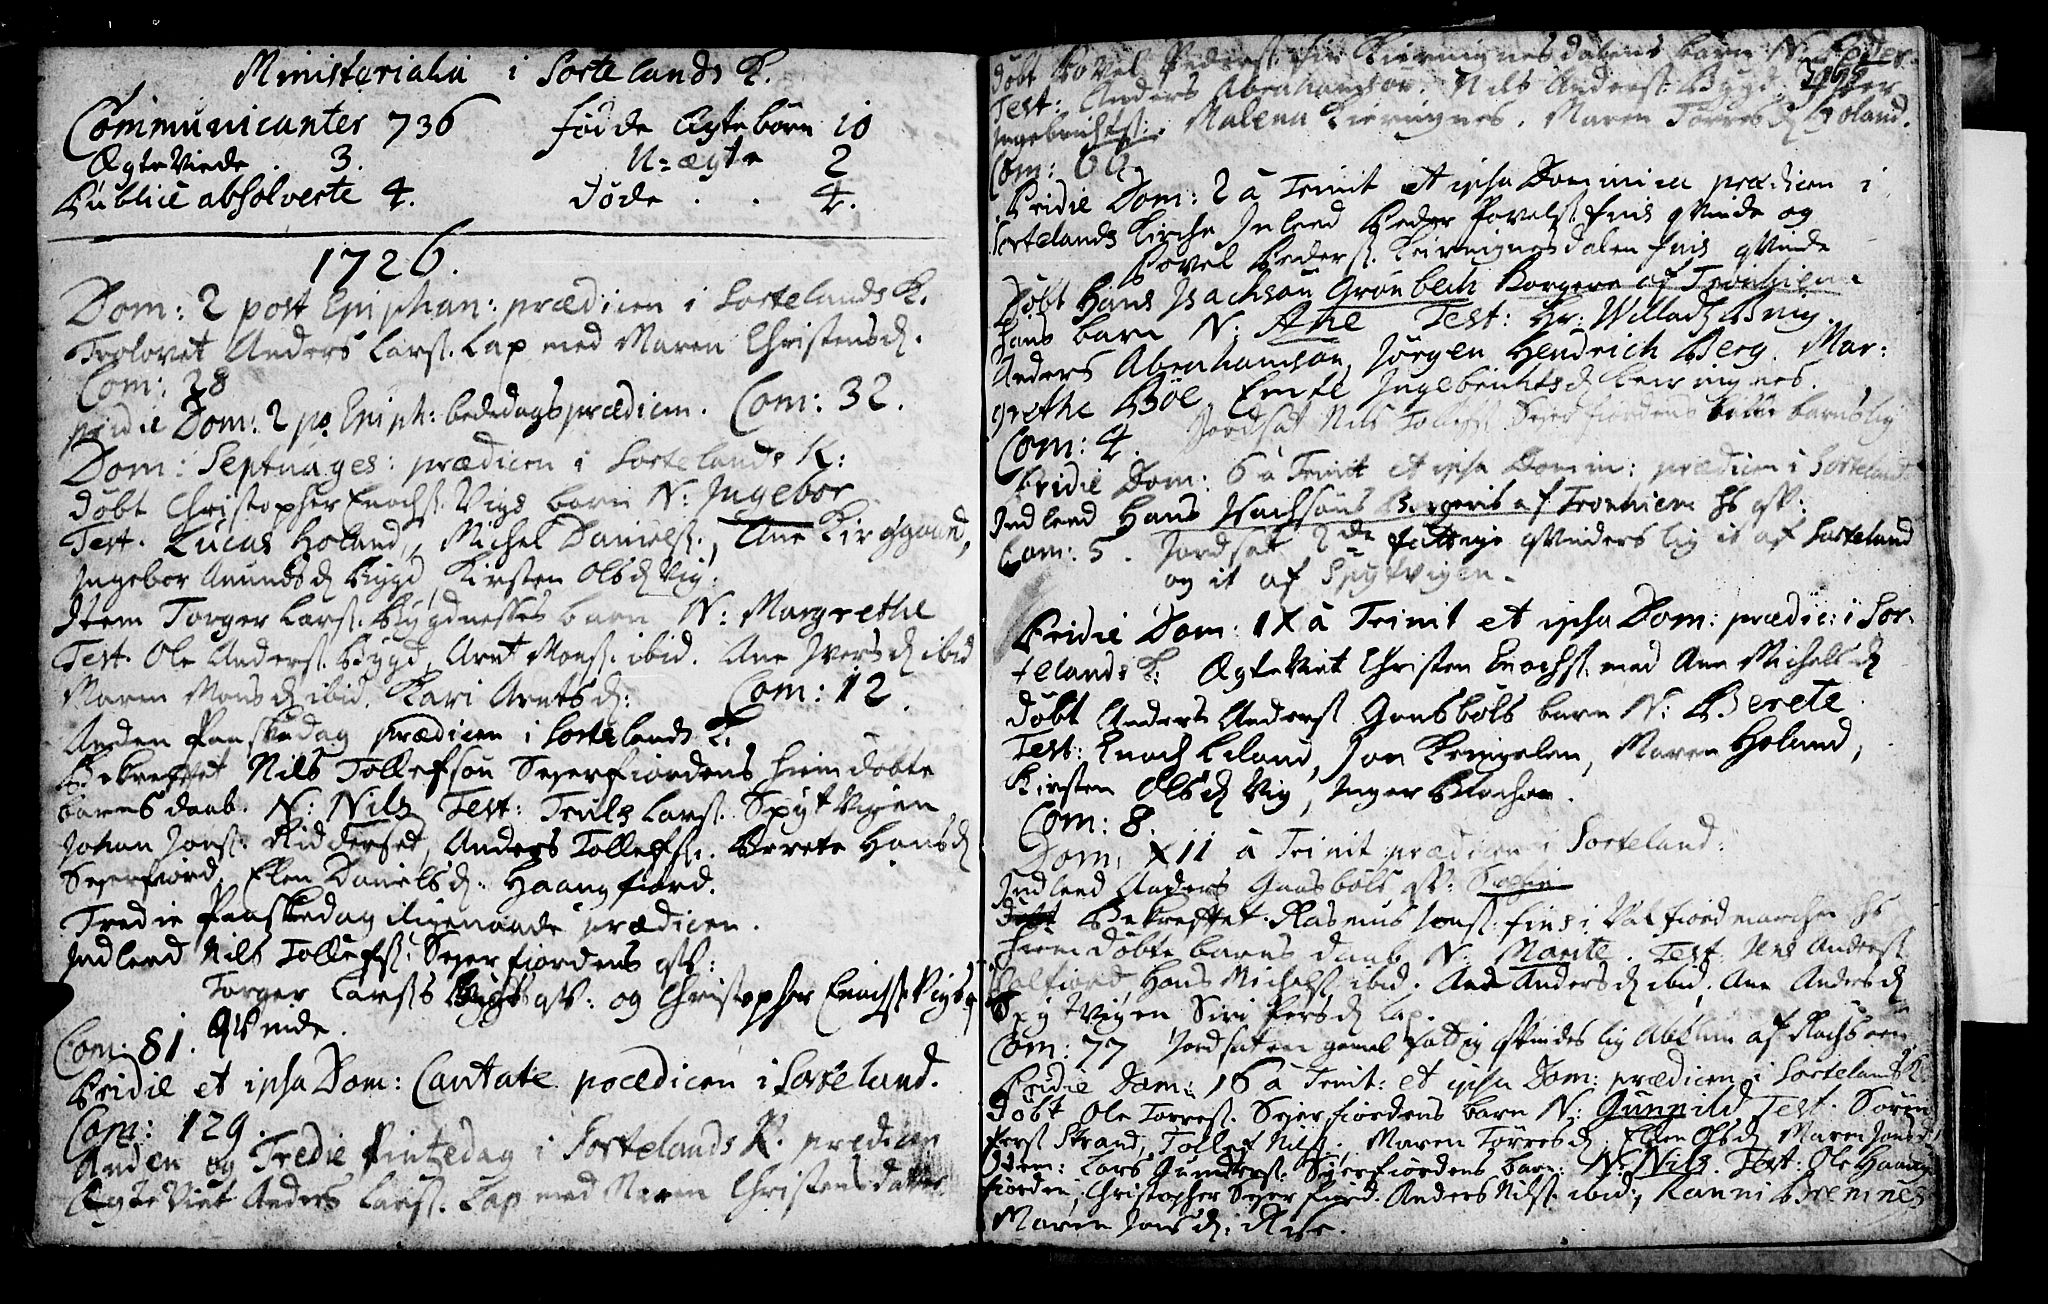 Ministerialia i Sortelands K.
Communicanter 736 fødde Ægtebørn 10
ÆgteViede . 3. U-ægte 2
Publicè absolverte 4. døde . . 4.
1726.
Dom: 2 post Epiphan: prædicen i Sortelands K.
Trolovet Anders Larss. Lap med Maren Christensd.
Com: 28
pridie Dom: 2 po Epiph: bededags prædicen. Com: 32.
Dom: Septuages: prædicen i Sortelands K:
døbt Christopher Enochss. Vigs barn N: Ingebor
Test. Lucas Holand, Michel Danielss., Ane Kirggaard,
Ingebor Amundsd Bygd, Kirsten Olsd Vig.
Item Torger Larss. Bygdnesses barn N: Margrethe
Test. Ole Anderss. Bygd, Arnt Monss. ibid. Ane Iversd ibid
Maren Monsd ibid. Kari Arntsd: Com: 12.
Anden Paaskedag prædicen i Sortelands K.
Bekreftet Nils Tollefsøn Sejerfiordens hiemdøbte
barns daab. N: Nils Test: Truls Larss. Spytvigen
Johan Jonss. Ridderset, Anders Tollefss. Berete Hansd
Sejerfiord, Elen Danielsd. Haangfiord.
Tredie Paaskedag iligemaade prædicen.
Indleed Nils Tollefss. Sejerfiordens qV:
Torger Larss qV: og Christopher Enochss. Vigs
Com: 81. qVinde.
Pridie et ipsa Dom: Cantate prædicen i Sorteland.
Com: 129.
Anden og Tredie Pintzedag i Sortelands K. prædicen
ÆgteViet Anders Larss. Lap med Maren Christensdatter
døbt Povel Pederss. fin Kieringnesdalens barn N: Peder
Test: Anders Abrahamson. Nils Anderss. Bygd, Peder
Ingebrichtss. Malena Kieringnes. Maren Torresd Holand.
Com: 66
Pridie Dom: 2 à Trinit et ipsa Dominica prædicen i
Sortelands Kirche Inleed Peder Povelss. fins qVinde og
Povel Pederss. Kieringnesdalen fins qVinde
Døbt Hans Isachsøn Grønbech Borgere af Tronhiem
hans barn N: Ane Test: Hr: Willadz
Anders Abrahamsøn, Jørgen Hendrich Berg. Mar:
grethe Böe, Ingebrichtsd Kieringnes.
Com: 4. Jordsat Nils Tollefss. Sejerfiordens barns lig
Pridie Dom: 6 à Trinit et ipsa Domin: prædicen i Sorteland
Indleed Hans Isachsøns Borgeris af Tronhiem hs qV:
Com: 5. Jordsat 2de fattige qVinders lig it af Sorteland
og it af Spytvigen.
Pridie Dom: IX à Trinit et ipsa Dom: prædic: i Sor:
telands K: ÆgteViet Christen Enochss. med Ane Michelsd
døbt Anders Anderss Gaasbøls barn N: Berete
Test: Enoch Eiland, Jon Kringelen, Maren Holand,
Kirsten Olsd Vig, Inger Blochen.
Com: 8.
Dom: XII à Trinit prædicen i Sorteland:
Indleed Anders Gaasbøls qV:
Bekreftet Rasmus Jonss. fins i Valfiordmarchen hs
hiemdøbte barns daab N: Marite. Test: Nils Anderss
Valfiord, Hans Michelss. ibid. Ane Andersd ibid, Ane Andersd
Spytvigen Siri Persd Lap.
Com: 77 Jordsat en gamel fattig qVindes lig af
Pridie Dom: 16 à Trinit: et ipsa Dom: prædicen i Sortelands K.
døbt Ole Torress. Sejerfiordens barn N: Gunnild Test. Søren
Perss Strand, Tollef Nilss. Maren Torresd. Elen Olsd Maren Jonsd
Item: Lars Gunderss. Sejerfiordens barn: N: Nils. Test: Ole Haang
fiorden, Christopher Sejerfiord. Anders Nilss. ibid, Karini Bremnes
Maren Jonsd: